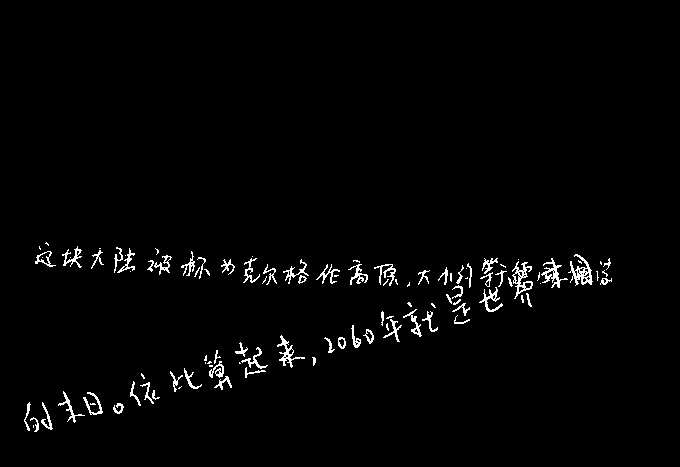 这块大陆被称为克尔格伦高原,大小约等
的末日。依此算起来,2060年就是世界